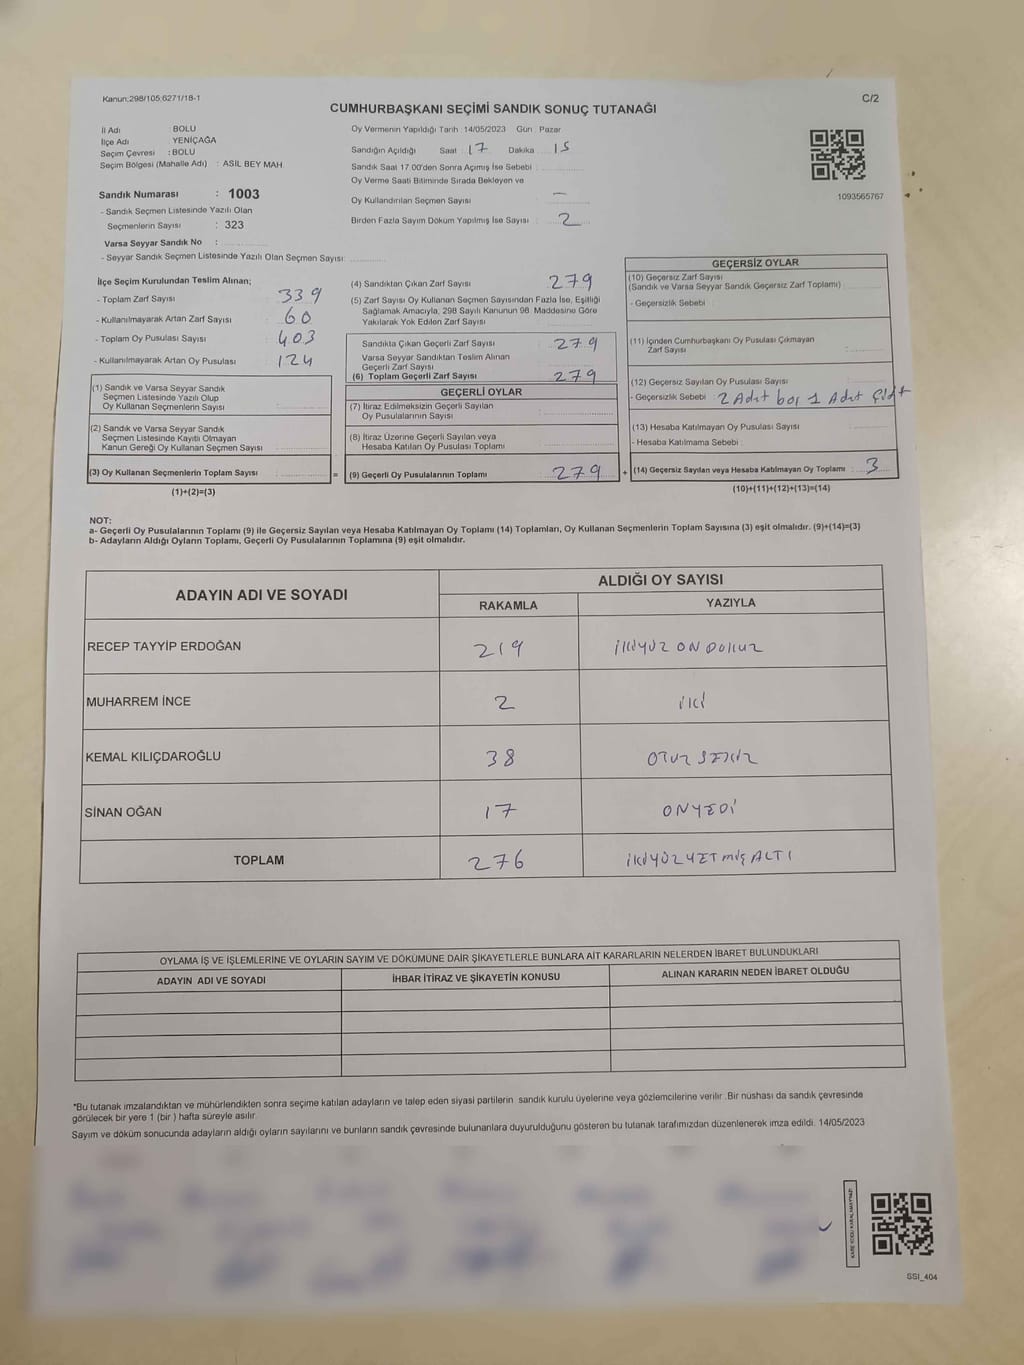 Kanun:298/105;6271/18-1
C/2
CUMHURBAŞKANI SEÇİMİ SANDIK SONUÇ TUTANAĞI
İl Adı : BOLU
İlçe Adı : YENİÇAĞA
Seçim Çevresi : BOLU
Seçim Bölgesi (Mahalle Adı) : ASIL BEY MAH.
Sandık Numarası : 1003
- Sandık Seçmen Listesinde Yazılı Olan
Seçmenlerin Sayısı : 323
Varsa Seyyar Sandık No :
- Seyyar Sandık Seçmen Listesinde Yazılı Olan Seçmen Sayısı:
Oy Vermenin Yapıldığı Tarih :14/05/2023 Gün : Pazar
Sandığın Açıldığı Saat : 17 Dakika : 15
Sandık Saat 17:00'den Sonra Açılmış İse Sebebi :
Oy Verme Saati Bitiminde Sırada Bekleyen ve
Oy Kullandırılan Seçmen Sayısı : —
Birden Fazla Sayım Döküm Yapılmış İse Sayısı : 2
1093565767
İlçe Seçim Kurulundan Teslim Alınan;
- Toplam Zarf Sayısı : 339
- Kullanılmayarak Artan Zarf Sayısı : 60
- Toplam Oy Pusulası Sayısı : 403
- Kullanılmayarak Artan Oy Pusulası : 124
(1) Sandık ve Varsa Seyyar Sandık
Seçmen Listesinde Yazılı Olup
Oy Kullanan Seçmenlerin Sayısı :
(2) Sandık ve Varsa Seyyar Sandık
Seçmen Listesinde Kayıtlı Olmayan
Kanun Gereği Oy Kullanan Seçmen Sayısı :
(3) Oy Kullanan Seçmenlerin Toplam Sayısı :
(1)+(2)=(3)
(4) Sandıktan Çıkan Zarf Sayısı : 279
(5) Zarf Sayısı Oy Kullanan Seçmen Sayısından Fazla İse, Eşitliği
Sağlamak Amacıyla, 298 Sayılı Kanunun 98. Maddesine Göre
Yakılarak Yok Edilen Zarf Sayısı :
Sandıkta Çıkan Geçerli Zarf Sayısı : 279
Varsa Seyyar Sandıktan Teslim Alınan
Geçerli Zarf Sayısı :
(6) Toplam Geçerli Zarf Sayısı : 279
GEÇERLİ OYLAR
(7) İtiraz Edilmeksizin Geçerli Sayılan
Oy Pusulalarının Sayısı :
(8) İtiraz Üzerine Geçerli Sayılan veya
Hesaba Katılan Oy Pusulası Toplamı :
= (9) Geçerli Oy Pusulalarının Toplamı : 279
GEÇERSİZ OYLAR
(10) Geçersiz Zarf Sayısı
(Sandık ve Varsa Seyyar Sandık Geçersiz Zarf Toplamı) :
- Geçersizlik Sebebi :
(11) İçinden Cumhurbaşkanı Oy Pusulası Çıkmayan
Zarf Sayısı :
(12) Geçersiz Sayılan Oy Pusulası Sayısı :
- Geçersizlik Sebebi : 2 Adet boş 1 Adet Çift
(13) Hesaba Katılmayan Oy Pusulası Sayısı :
- Hesaba Katılmama Sebebi :
+ (14) Geçersiz Sayılan veya Hesaba Katılmayan Oy Toplamı : 3
(10)+(11)+(12)+(13)=(14)
NOT:
a- Geçerli Oy Pusulalarının Toplamı (9) ile Geçersiz Sayılan veya Hesaba Katılmayan Oy Toplamı (14) Toplamları, Oy Kullanan Seçmenlerin Toplam Sayısına (3) eşit olmalıdır. (9)+(14)=(3)
b- Adayların Aldığı Oyların Toplamı, Geçerli Oy Pusulalarının Toplamına (9) eşit olmalıdır.
ADAYIN ADI VE SOYADI
ALDIĞI OY SAYISI
RAKAMLA YAZIYLA
RECEP TAYYİP ERDOĞAN 219 İKİYÜZ ON DOKUZ
MUHARREM İNCE 2 İKİ
KEMAL KILIÇDAROĞLU 38 OTUZ SEKİZ
SİNAN OĞAN 17 ONYEDİ
TOPLAM 276 İKİYÜZYETMİŞ ALTI
OYLAMA İŞ VE İŞLEMLERİNE VE OYLARIN SAYIM VE DÖKÜMÜNE DAİR ŞİKAYETLERLE BUNLARA AİT KARARLARIN NELERDEN İBARET BULUNDUKLARI
ADAYIN ADI VE SOYADI İHBAR İTİRAZ VE ŞİKAYETİN KONUSU ALINAN KARARIN NEDEN İBARET OLDUĞU
*Bu tutanak imzalandıktan ve mühürlendikten sonra seçime katılan adayların ve talep eden siyasi partilerin sandık kurulu üyelerine veya gözlemcilerine verilir .Bir nüshası da sandık çevresinde
görülecek bir yere 1 (bir ) hafta süreyle asılır.
Sayım ve döküm sonucunda adayların aldığı oyların sayılarını ve bunların sandık çevresinde bulunanlara duyurulduğunu gösteren bu tutanak tarafımızdan düzenlenerek imza edildi. 14/05/2023
KARE KODU KARALAMAYINIZ!
SSI_404